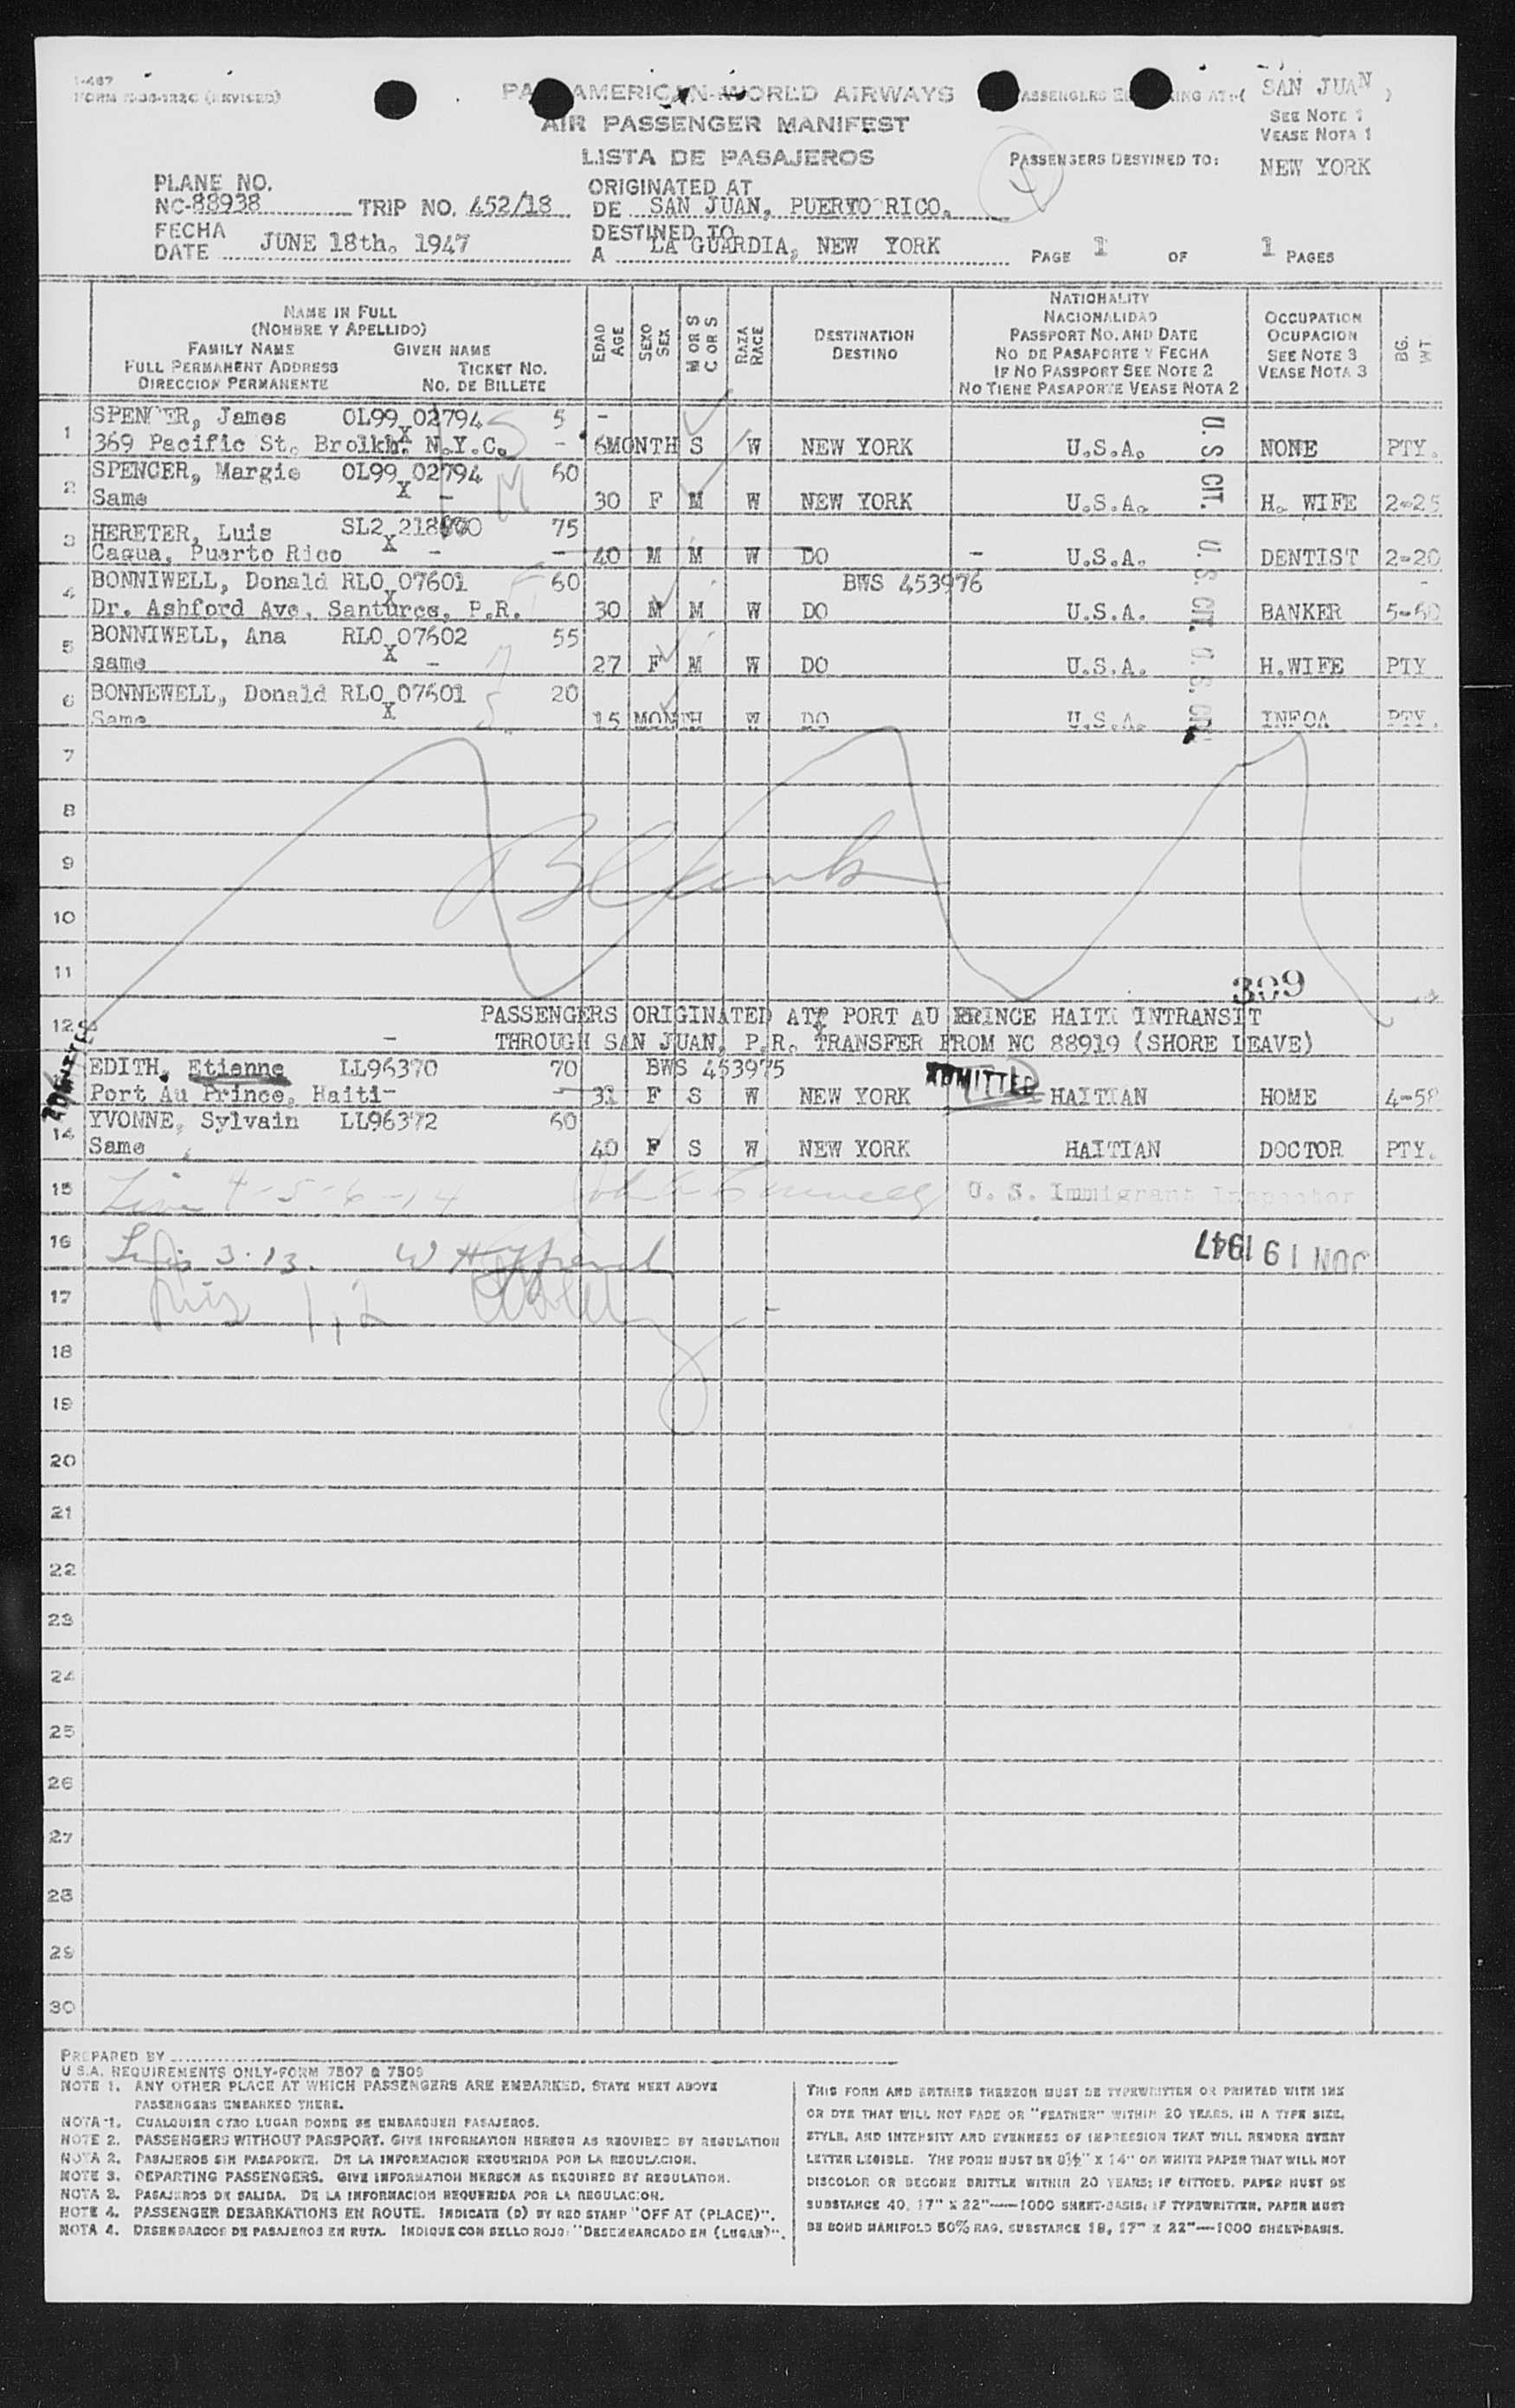 I-487
PAN AMERICAN WORLD AIRWAYS
SAN JUAN )
AIR PASSENGER MANIFEST
SEE NOTE 1
VEASE NOTA 1
LISTA DE PASAJEROS
PASSENGERS DESTINED TO:
NEW YORK
PLANE NO.
NC-88938 TRIP NO. 452/18
ORIGINATED AT
DE SAN JUAN, PUERTO RICO.
FECHA
DATE JUNE 18th. 1947
DESTINED TO
A LA GUARDIA, NEW YORK
PAGE 1 OF 1 PAGES
NAME IN FULL
(NOMBRE Y APELLIDO)
FAMILY NAME GIVEN NAME
FULL PERMANENT ADDRESS TICKET NO.
DIRECCION PERMANENTE NO. DE BILLETE
EDAD
AGE
SEXO
SEX
M OR S
C OR S
RAZA
RACE
DESTINATION
DESTINO
NATIONALITY
NACIONALIDAD
PASSPORT NO. AND DATE
NO DE PASAPORTE Y FECHA
IF NO PASSPORT SEE NOTE 2
NO TIENE PASAPORTE VEASE NOTA 2
OCCUPATION
OCUPACION
SEE NOTE 3
VEASE NOTA 3
BG.
WT
1 SPENCER, James OL99 02794 5 -
369 Pacific St. Brolkn. N.Y.C. - 6MONTH S W NEW YORK U.S.A. U.S CIT. NONE PTY.
2 SPENCER, Margie OL99 02794 60
Same X - 30 F M W NEW YORK U.S.A. H. WIFE 2-25
3 HERETER, Luis SL2 75
Cagua, Puerto Rico X - - 40 M M W DO - U.S.A. DENTIST 2-20
4 BONNIWELL, Donald RLO 07601 60 BWS 453976
Dr. Ashford Ave. Santurce, P.R. 30 M M W DO U.S.A. U.S. CIT. BANKER 5-60
5 BONNIWELL, Ana RLO 07602 55
same X - 27 F M W DO U.S.A. H.WIFE PTY
6 BONNEWELL, Donald RLO 07601 20
Same X 15 MONTH W DO U.S.A. U.S. CIT. INFOA PTY.
7
8
9 Blank
10
11
309
12 PASSENGERS ORIGINATED AT PORT AU PRINCE HAITI INTRANSIT
THROUGH SAN JUAN, P.R. TRANSFER FROM NC 88919 (SHORE LEAVE)
EDITH, Etienne LL96370 70 BWS 453975 ADMITTED
Port Au Prince, Haiti- - 31 F S W NEW YORK HAITIAN HOME 4-58
14 YVONNE, Sylvain LL96372 60
Same 40 F S W NEW YORK HAITIAN DOCTOR PTY.
15 4-5-6-14 U. S. Immigrant Inspector
16 3-13. JUN 19 1947
17 1,2
18
19
20
21
22
23
24
25
26
27
28
29
30
PREPARED BY
U.S.A. REQUIREMENTS ONLY-FORM 7507 & 7509
NOTE 1. ANY OTHER PLACE AT WHICH PASSENGERS ARE EMBARKED, STATE NEXT ABOVE
PASSENGERS EMBARKED THERE.
NOTA 1. CUALQUIER OTRO LUGAR DONDE SE EMBARQUEN PASAJEROS.
NOTE 2. PASSENGERS WITHOUT PASSPORT. GIVE INFORMATION HEREON AS REQUIRED BY REGULATION
NOTA 2. PASAJEROS SIN PASAPORTE. DE LA INFORMACION REQUERIDA POR LA REGULACION.
NOTE 3. DEPARTING PASSENGERS. GIVE INFORMATION HEREON AS REQUIRED BY REGULATION.
NOTA 3. PASAJEROS DE SALIDA. DE LA INFORMACION REQUERIDA POR LA REGULACION.
NOTE 4. PASSENGER DEBARKATIONS EN ROUTE. INDICATE (D) BY RED STAMP "OFF AT (PLACE)".
NOTA 4. DESEMBARCOS DE PASAJEROS EN RUTA. INDIQUE CON SELLO ROJO: "DESEMBARCADO EN (LUGAR)".
THIS FORM AND ENTRIES THEREON MUST BE TYPEWRITTEN OR PRINTED WITH INK
OR DYE THAT WILL NOT FADE OR "FEATHER" WITHIN 20 YEARS, IN A TYPE SIZE,
STYLE, AND INTENSITY AND EVENNESS OF IMPRESSION THAT WILL RENDER EVERY
LETTER LEGIBLE. THE FORM MUST BE 8½" X 14" ON WHITE PAPER THAT WILL NOT
DISCOLOR OR BECOME BRITTLE WITHIN 20 YEARS; IF DITTOED, PAPER MUST BE
SUBSTANCE 40, 17" X 22"—1000 SHEET-BASIS; IF TYPEWRITTEN, PAPER MUST
BE BOND MANIFOLD 50% RAG, SUBSTANCE 18, 17" X 22"—1000 SHEET-BASIS.